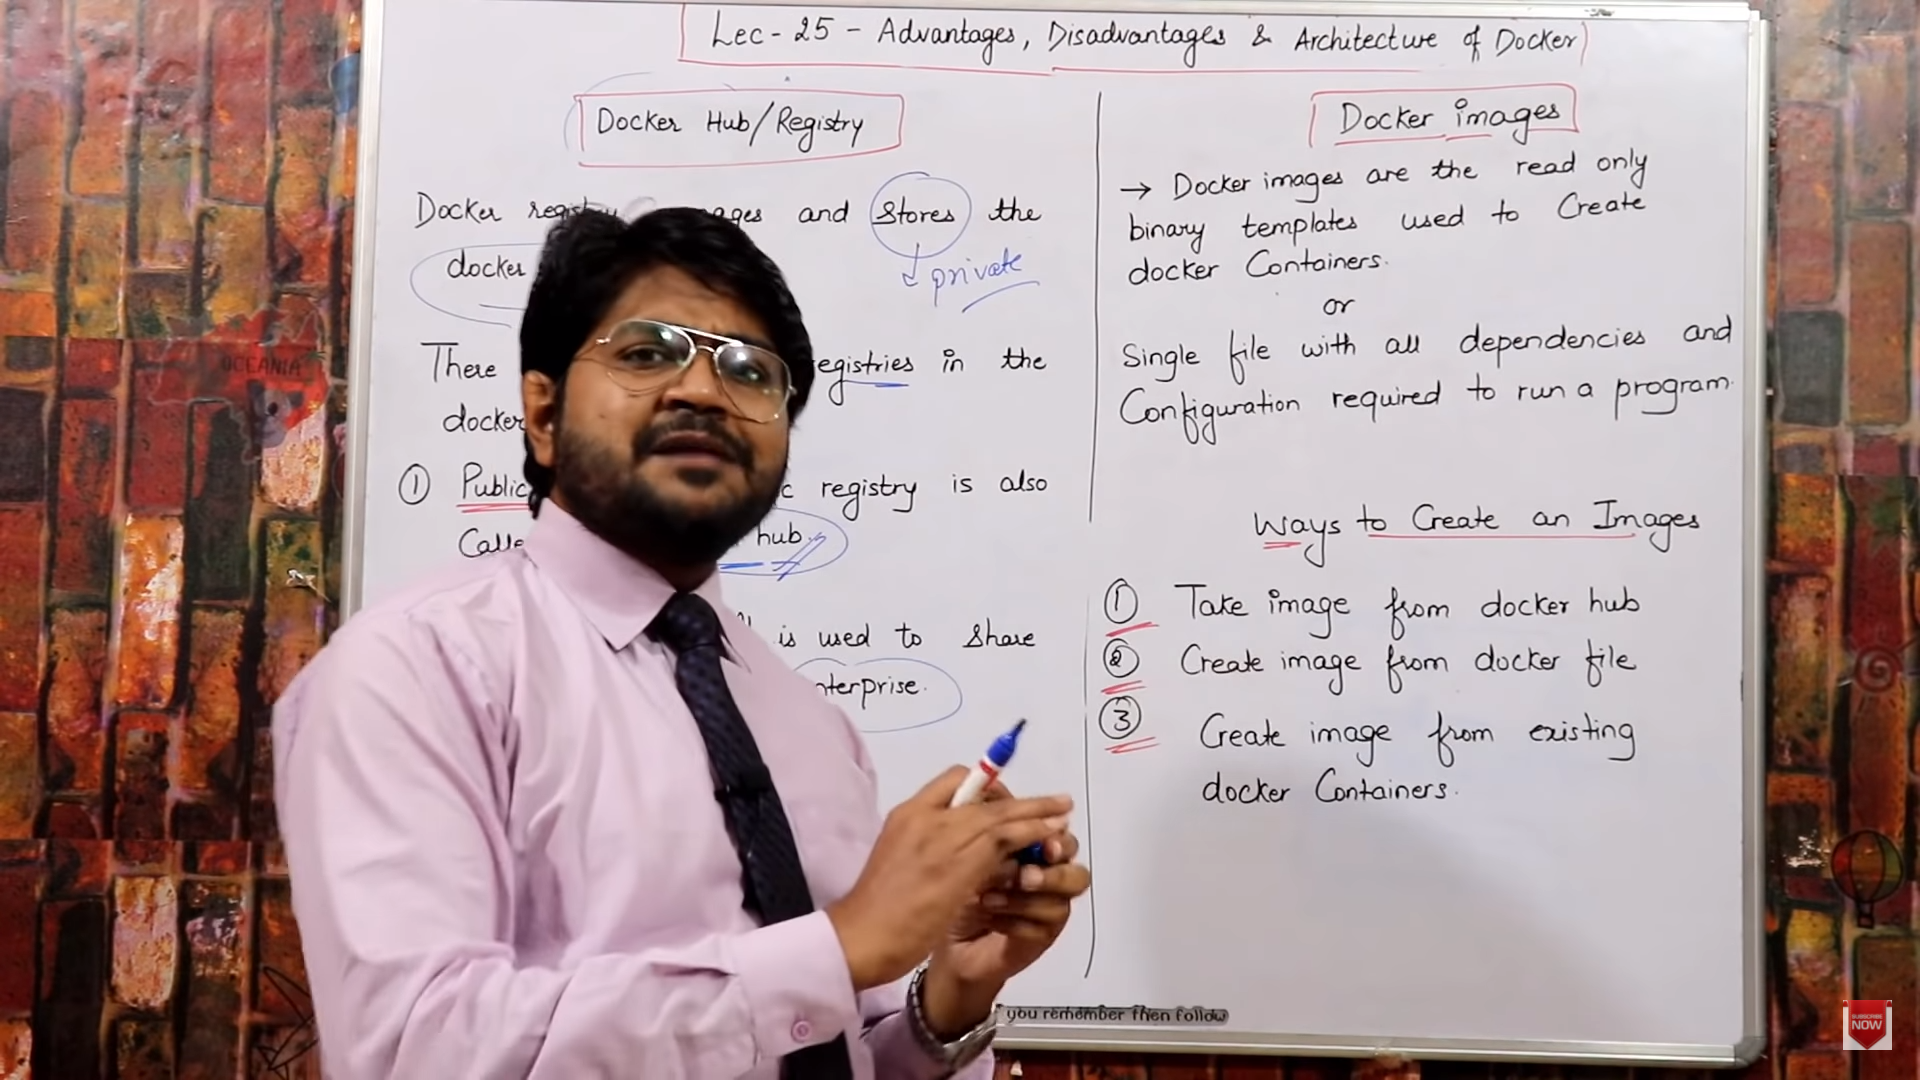 Lec - 25 - Advantages, Disadvantages & Architecture of Docker
Docker Hub/Registry
Docker and stores the
docker
private
There registries in the
docker
① Public registry is also
Calle hub.
is used to share
nterprise.
Docker images
→ Docker images are the read only
binary templates used to Create
docker Containers.
or
Single file with all dependencies and
Configuration required to run a program.
Ways to Create an Images
① Take image from docker hub
② Create image from docker file
③ Create image from existing
docker Containers.
you remember then follow
OCEANIA
SUBSCRIBE
NOW